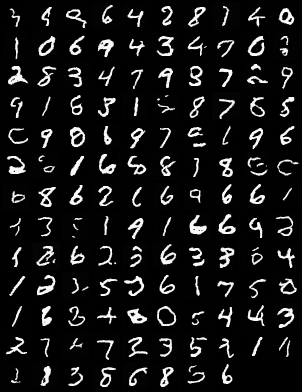 9 6 4 2 8 7 4 0
1 0 6 9 4 3 4 7 0 3
2 8 3 4 7 9 3 7 2 9
9 1 8 5 1 8 7 6 5
9 0 6 9 7 1 9 6
2 1 6 8 8 1 8
6 8 6 2 6 9 6 6 1
3 1 9 1 6 6 9 2
1 2 6 2 3 6 3 3 6 4
1 2 5 3 6 1 7 5 0
1 8 3 4 8 0 5 4 4 3
2 7 4 7 2 3 5 2 1 1
8 3 8 6 8 5 6